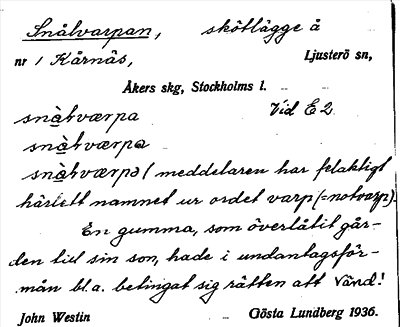 Snålvarpan, skötlägge å
nr 1 Kårnäs, Ljusterö sn,
Åkers skg, Stockholms l.
snàlværpa Vid E 2
snàlværpa
snàlværpə (meddelaren har felaktigt
härlett namnet ur ordet varp (=notvarp).
En gumma, som överlåtit går-
den till sin son, hade i undantagsför-
mån bl.a. betingat sig rätten att
John Westin Gösta Lundberg 1936.